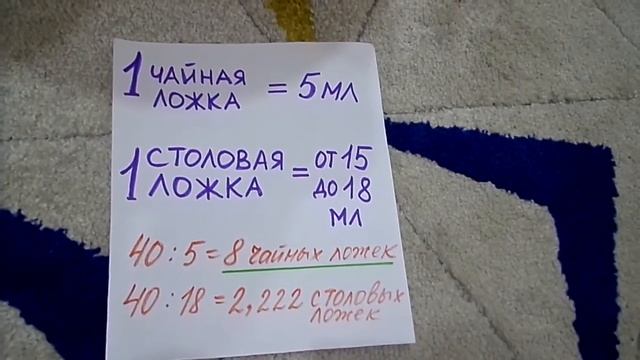 1 ЧАЙНАЯ
ЛОЖКА = 5 МЛ
1 СТОЛОВАЯ
ЛОЖКА = ОТ 15
ДО 18
МЛ
40 : 5 = 8 чайных ложек
40 : 18 = 2,222 столовых
ложек